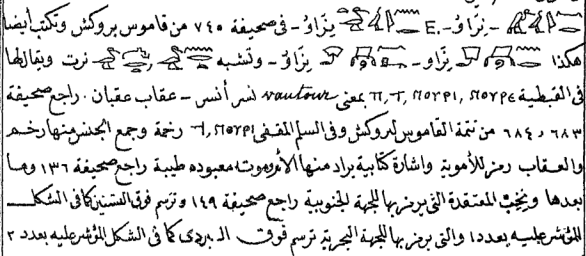 - نِرَاوُ - .E نِرَاوُ - فى صحيفة ٧٤٥ من قاموس بروكش وتكتب أيضا
هكذا نِرَاو - نِرَاوُ - وتشبه نرت ويقابلها
فى القبطية ⲚⲞⲨⲢⲈ, ⲚⲞⲨⲢⲒ, Ⲧ, Ⲡ بمعنى vautour نسر أنسر - عقاب عقبان . راجع صحيفة
٦٨٣ و ٦٨٤ من تتمة القاموس لبروكش وفى السلم المقفى ⲚⲞⲨⲢⲒ, Ⲧ رخمة وجمع الجنس منها رخم
والعقاب رمز للأموية واشارة كتابية يراد منها الأم وموت معبوده طيبة راجع صحيفة ١٣٦ وما
بعدها و المعتقدة التى يرمز بها للجهة الجنوبية راجع صحيفة ١٤٩ وترسم فوق كما فى الشكل
المؤشر عليه بعدد ١ والتى يرمز بها للجهة البحرية ترسم فوق البردى كما فى الشكل المؤشر عليه بعدد ٢